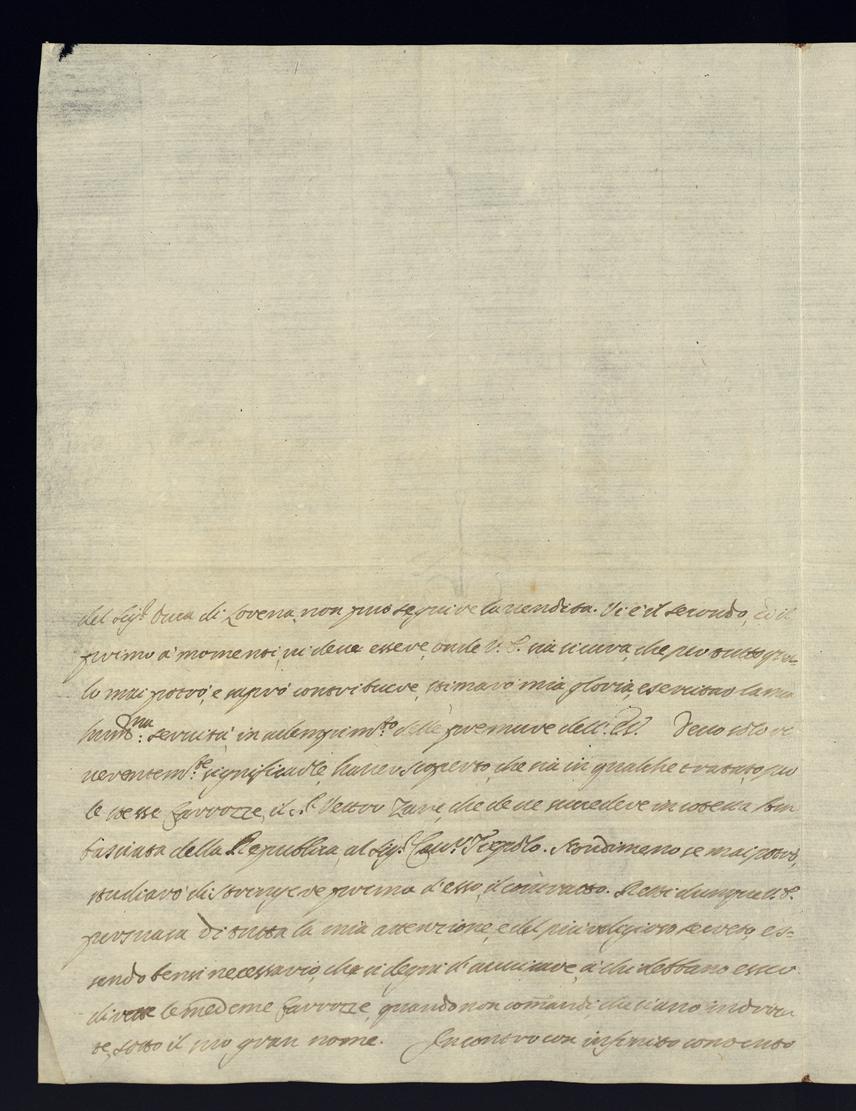 del Sig.r Duca di Lorena, non può seguire la vendita. Vi è il secondo, ed il
primo à momenti vi deve essere, onde V. S. sia sicura, che per tutto quel
lo mai potrò, e saprò contribuire, stimarò mia gloria, esercitar la mia
hum.ma servitù in adempim.to delle premure dell'. Devo solo ri
verentem.te significarle, haver scoperto, che sia in qualche trattato per
le stesse Carrozze, il S.r Vettor Zane, che deve succedere in cotesta Am
basciata della Republica, al Sig.r Cav.r Tiepolo. Nondimeno se mai potrò,
studiarò di stringere prima d'esso, il contratto. Resti dunque V. S.
persuasa di tutta la mia attenzione, e del più religioso secreto, es-
sendo bensì necessario, che si degni d'avvisare, à chi debbano esser
dirette le medeme Carrozze, quando non comandi che siano indrizza
te, sotto il suo gran nome. Incontro con infinito contento